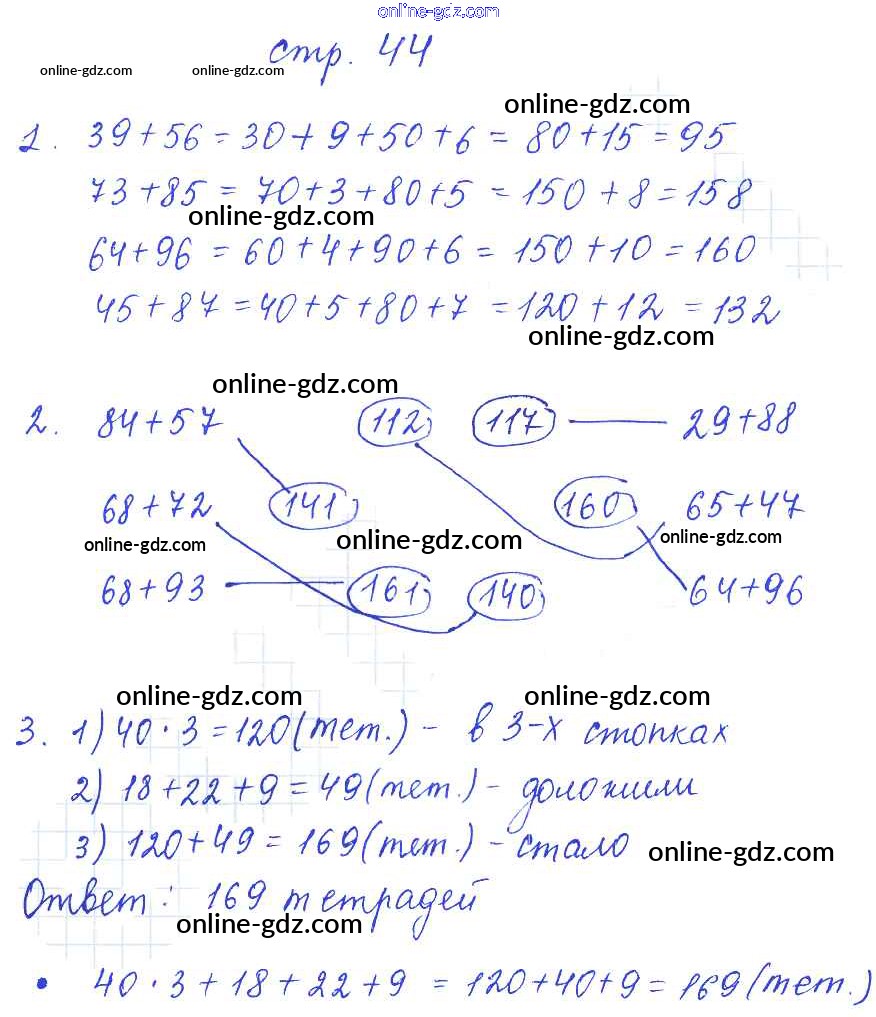 online-gdz.com
стр. 44
online-gdz.com online-gdz.com
online-gdz.com
1. 39+56 = 30+9+50+6 = 80+15 = 95
73+85 = 70+3+80+5 = 150+8 = 158
online-gdz.com
64+96 = 60+4+90+6 = 150+10 = 160
45+87 = 40+5+80+7 = 120+12 = 132
online-gdz.com
online-gdz.com
2. 84+57 112 117 29+88
68+72 141 160 65+47
online-gdz.com online-gdz.com online-gdz.com
68+93 161 140 64+96
online-gdz.com online-gdz.com
3. 1) 40·3=120(тет.) - в 3-х стопках
2) 18+22+9=49(тет.) - доложили
3) 120+49=169(тет.) - стало
online-gdz.com
Ответ: 169 тетрадей
online-gdz.com
• 40·3+18+22+9 = 120+40+9 = 169(тет.)